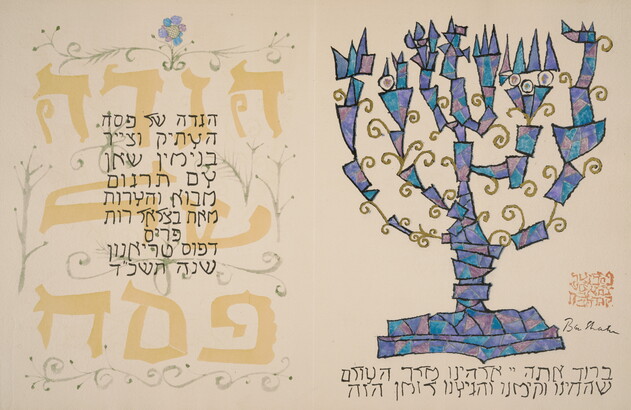 הגדה
של
פסח
הגדה של פסח
העתיק וצייר
בנימין שאן
עם תרגום
מבוא והערות
מאת בצלאל רות
פריס
דפוס טריאנון
שנת תשכ"ד
Ben Shahn
ברוך אתה יי אלהינו מלך העולם
שהחינו וקימנו והגיענו לזמן הזה